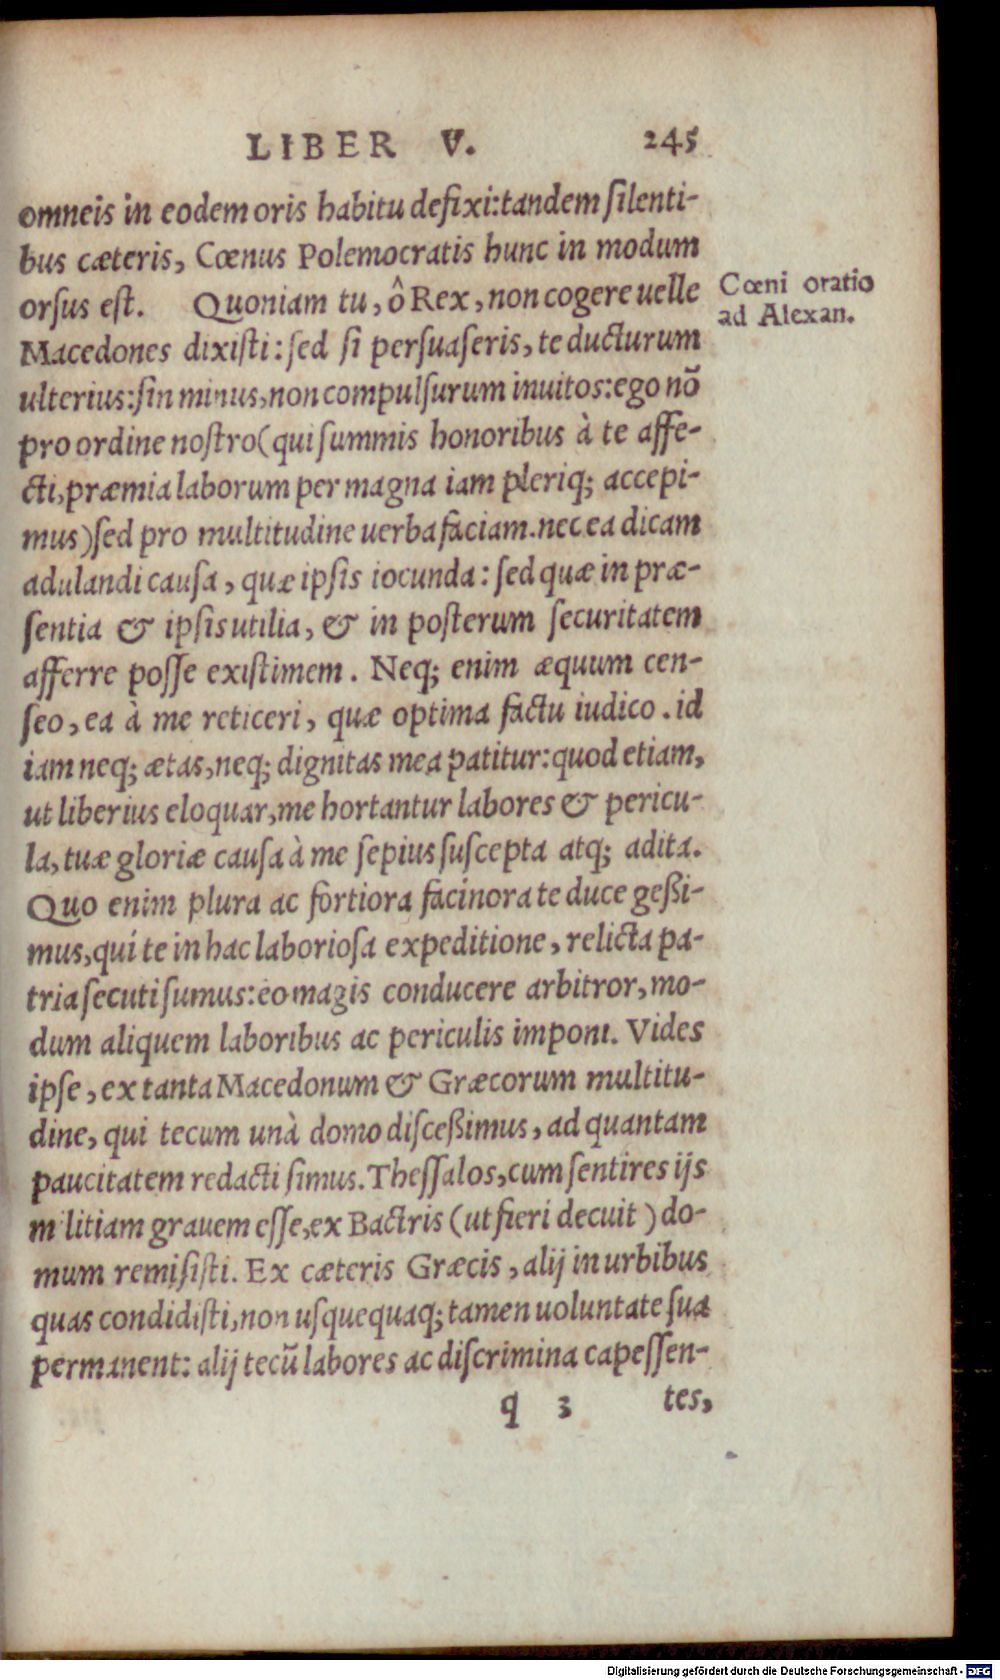 LIBER V. 245
omneis in eodem oris habitu defixi: tandem ſilenti-
bus cæteris, Cœnus Polemocratis hunc in modum
orſus eſt. Quoniam tu, ô Rex, non cogere uelle
Cœni oratio
ad Alexan.
Macedones dixiſti: ſed ſi perſuaſeris, te ducturum
ulterius: ſin minus, non compulſurum inuitos: ego nõ
pro ordine noſtro (qui ſummis honoribus à te affe-
cti, præmia laborum per magna iam pleriq; accepi-
mus) ſed pro multitudine uerba faciam. nec ea dicam
adulandi cauſa, quæ ipſis iocunda: ſed quæ in præ-
ſentia & ipſis utilia, & in poſterum ſecuritatem
afferre poſſe exiſtimem. Neq; enim æquum cen-
ſeo, ea à me reticeri, quæ optima factu iudico. id
iam neq; ætas, neq; dignitas mea patitur: quod etiam,
ut liberius eloquar, me hortantur labores & pericu-
la, tuæ gloriæ cauſa à me ſepius ſuſcepta atq; adita.
Quo enim plura ac fortiora facinora te duce geßi-
mus, qui te in hac laborioſa expeditione, relicta pa-
tria ſecuti ſumus: eo magis conducere arbitror, mo-
dum aliquem laboribus ac periculis imponi. Vides
ipſe, ex tanta Macedonum & Græcorum multitu-
dine, qui tecum unà domo diſceßimus, ad quantam
paucitatem redacti ſimus. Theſſalos, cum ſentires ijs
militiam grauem eſſe, ex Bactris (ut fieri decuit) do-
mum remiſiſti. Ex cæteris Græcis, alij in urbibus
quas condidiſti, non uſquequaq; tamen uoluntate ſua
permanent: alij tecũ labores ac diſcrimina capeſſen-
q 3 tes,
Digitalisierung gefördert durch die Deutsche Forschungsgemeinschaft - DFG